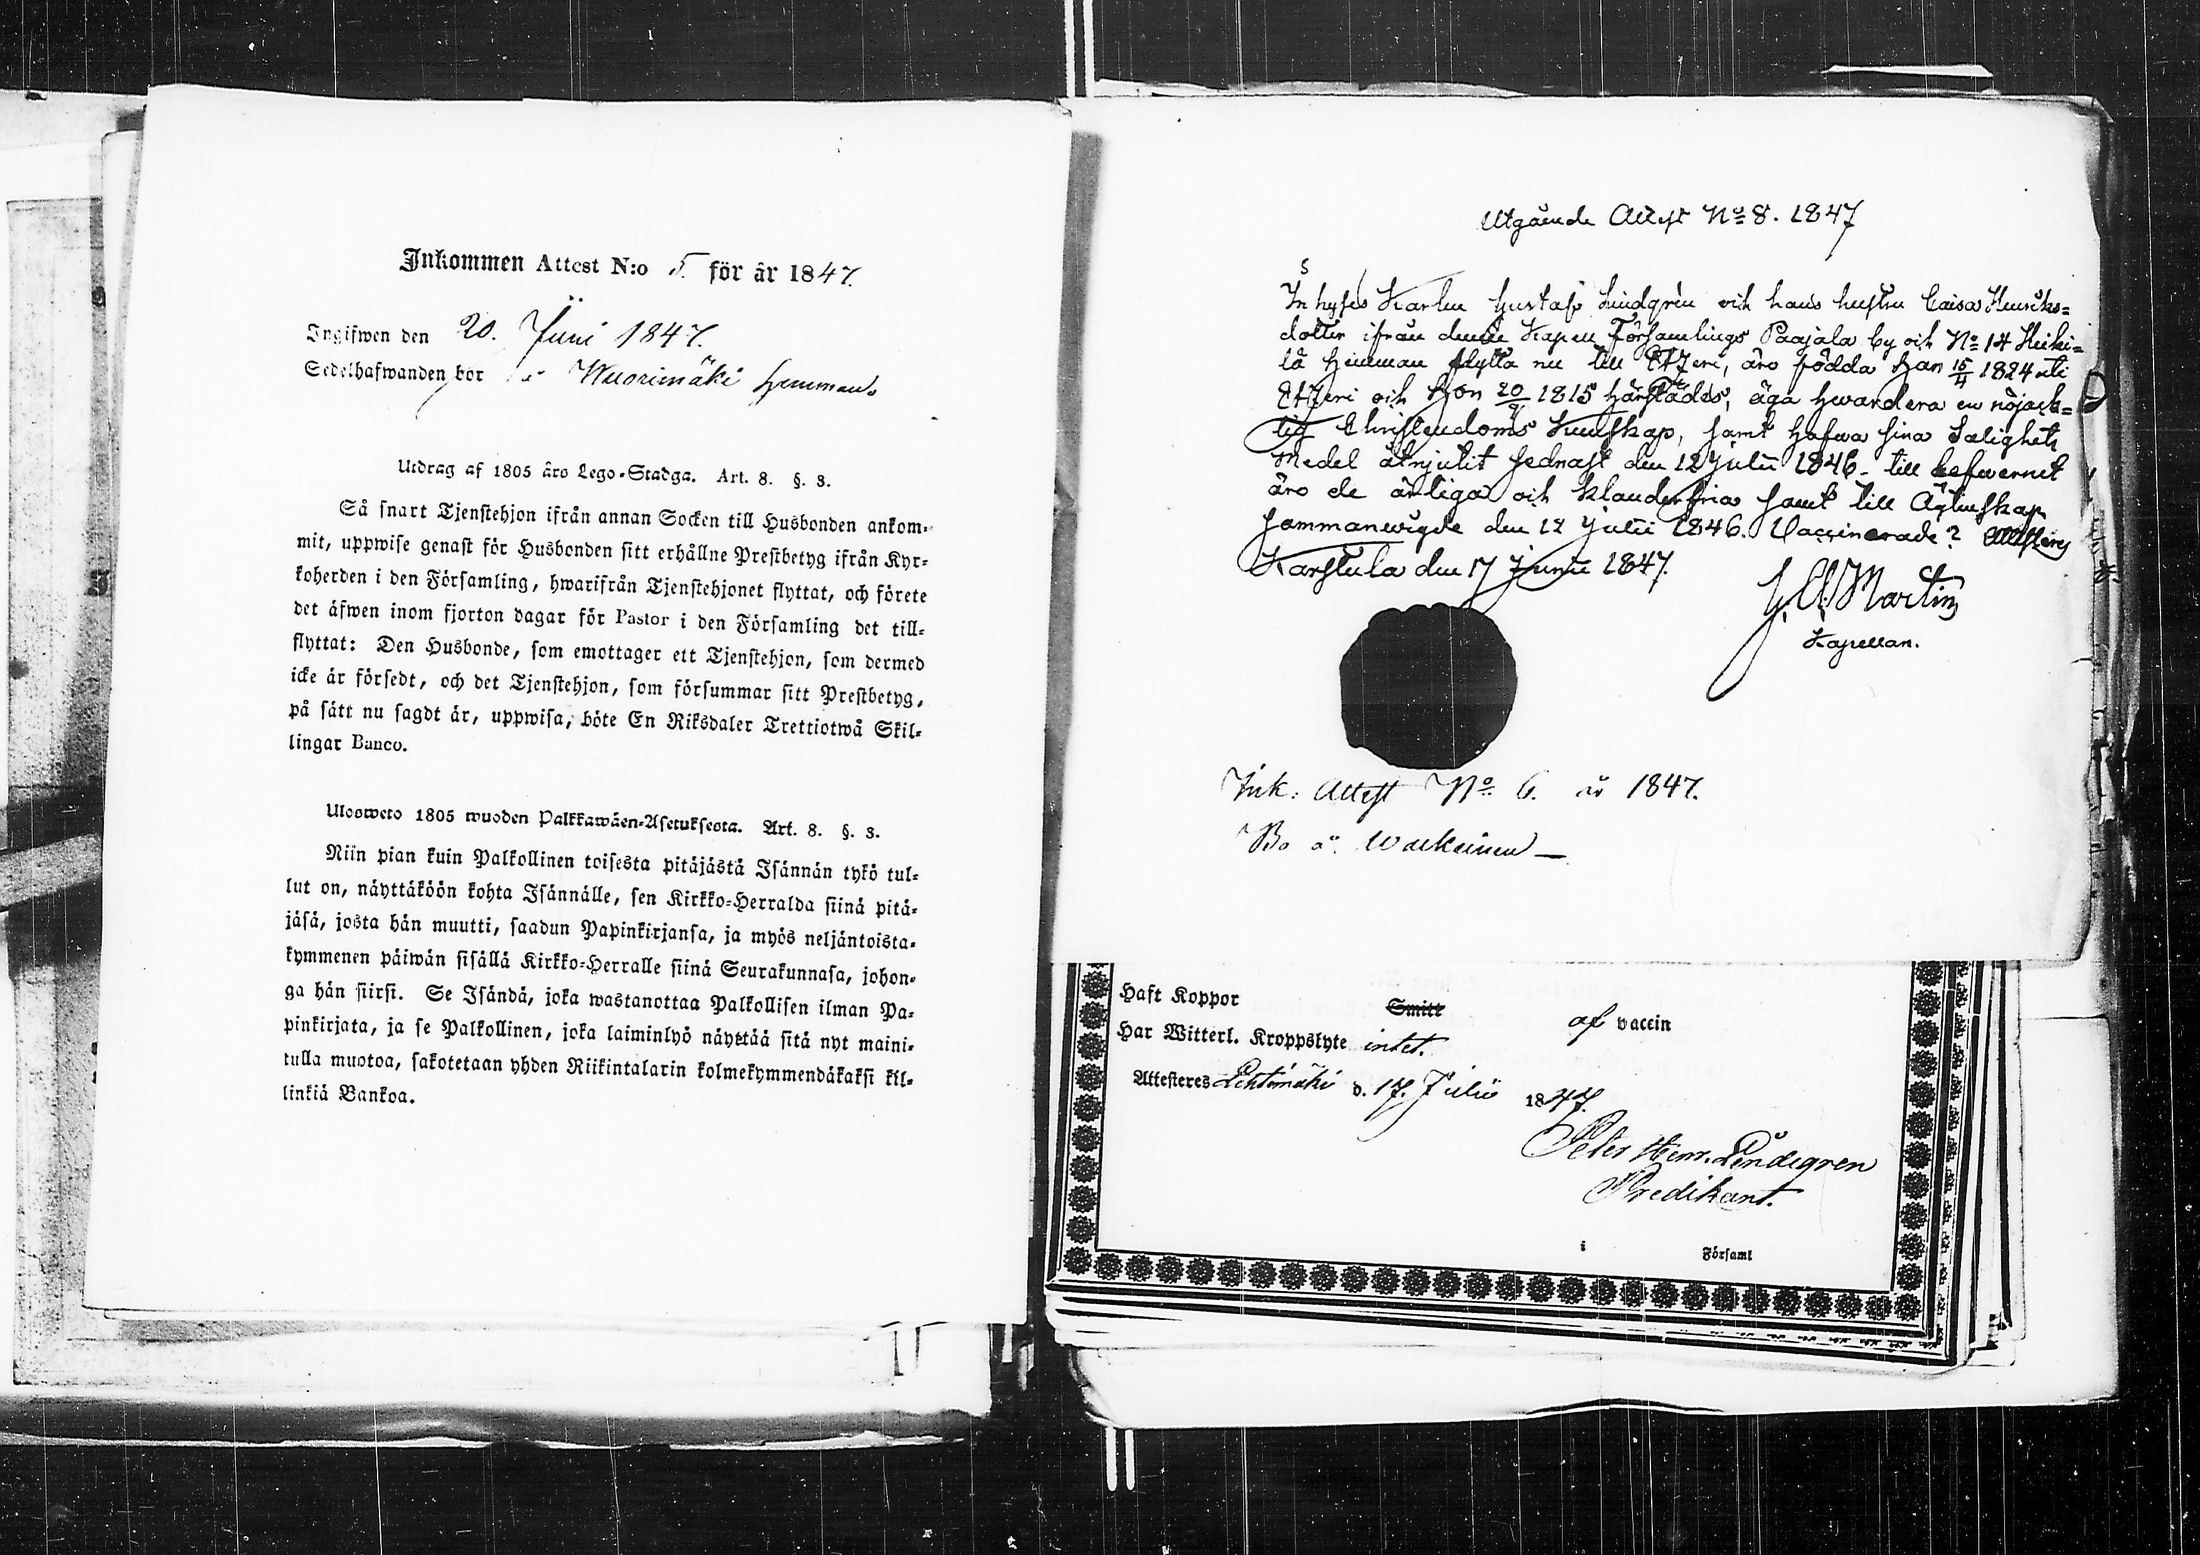 Inkommen Attest N:o 5. för år 1847.
Ingifwen den 20. Juni 1847.
Sedelhafwanden bor på Wuorimäki hemman
Utdrag af 1805 års Lego-Stadga. Art. 8. §. 3.
Så snart Tjenstehjon ifrån annan Socken till Husbonden ankom-
mit, uppwise genast för Husbonden sitt erhållne Prestbetyg ifrån Kyr-
koherden i den Församling, hwarifrån Tjenstehjonet flyttat, och förete
det äfwen inom fjorton dagar för Pastor i den Församling det till-
flyttat: Den Husbonde, som emottager ett Tjenstehjon, som dermed
icke är försedt, och det Tjenstehjon, som försummar sitt Prestbetyg,
på sätt nu sagdt är, uppwisa, böte En Riksdaler Trettiotwå Skil-
lingar Banco.
Ulosweto 1805 wuoden Palkkawäen-Asetuksesta. Art. 8. §. 3.
Niin pian kuin Palkollinen toisesta pitäjästä Isännän tykö tul-
lut on, näyttäköön kohta Isännälle, sen Kirkko-Herralda siinä pitä-
jäsä, josta hän muutti, saadun Papinkirjansa, ja myös neljäntoista-
kymmenen päiwän sisällä Kirkko-Herralle siinä Seurakunnasa, johon-
ga hän siirsi. Se Isändä, joka wastanottaa Palkollisen ilman Pa-
pinkirjata, ja se Palkollinen, joka laiminlyö näyttää sitä nyt maini-
tulla muotoa, sakotetaan yhden Riikintalarin kolmekymmendäkaksi kil-
linkiä Bankoa.
Utgående Attest No 8. 1847
Inhyses Karlen Gustaf Lindgrén och hans hustru Caisa Henriks-
dotter ifrån denna Kapell Församlings Paajala by och No 14 Heiki-
lä hemman flytta nu till Etzeri, äro födda Han 15/4 1824 uti
Etzeri och Hon 20/9 1815 härstädes, äga hwardera en nöjack-
tig Christendoms Kunskap, samt hafwa sina Salighets
Medel åtnjutit sednast den 12 Julii 1846 - till lefwernet
äro de ärliga och klanderfria samt till Ägtenskap
sammanwigde den 12 Julii 1846. Vaccinerade? Attesterar
Karstula den 17 Junii 1847.
Martin
Kapellan.
Ink: Attest No 6. år 1847.
Bo å
Haft Koppor Smitt af vaccin
Har Witterl. Kroppslyte intet.
Attesteres Lehtimäki d. 17. Julii 1847.
Peter Henr. Lindegren
Predikant.
i Församl